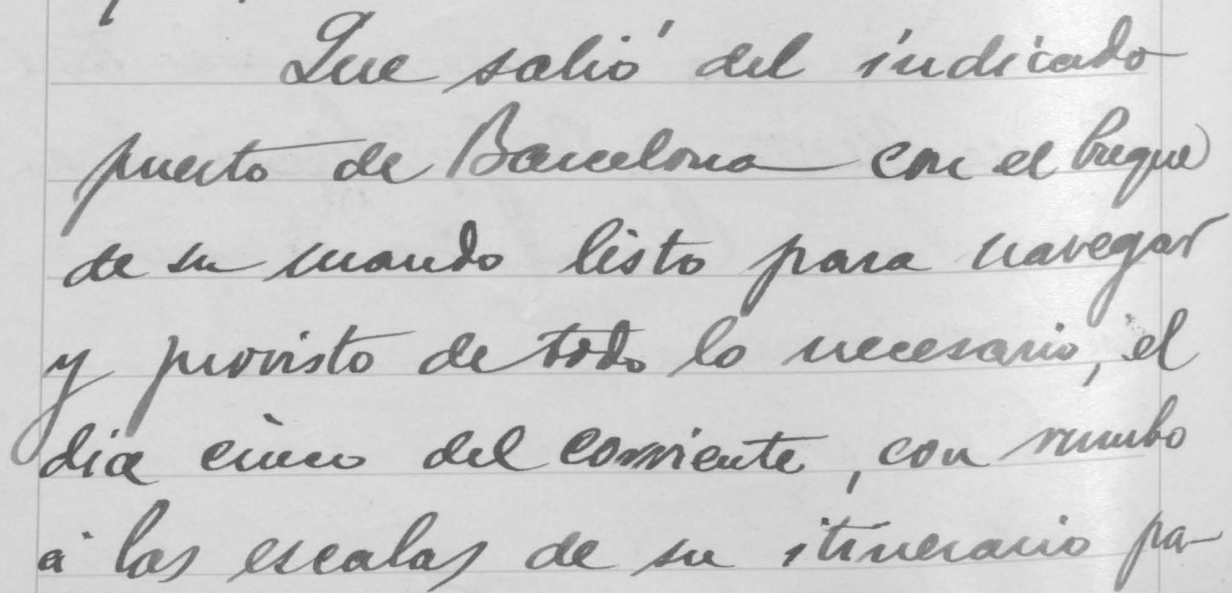 Que salió del indicado
puerto de Barcelona con el buque
de su mando listo para navegar
y provisto de todo lo necesario, el
día cinco del corriente, con rumbo
á las escalas de su itinerario pa-